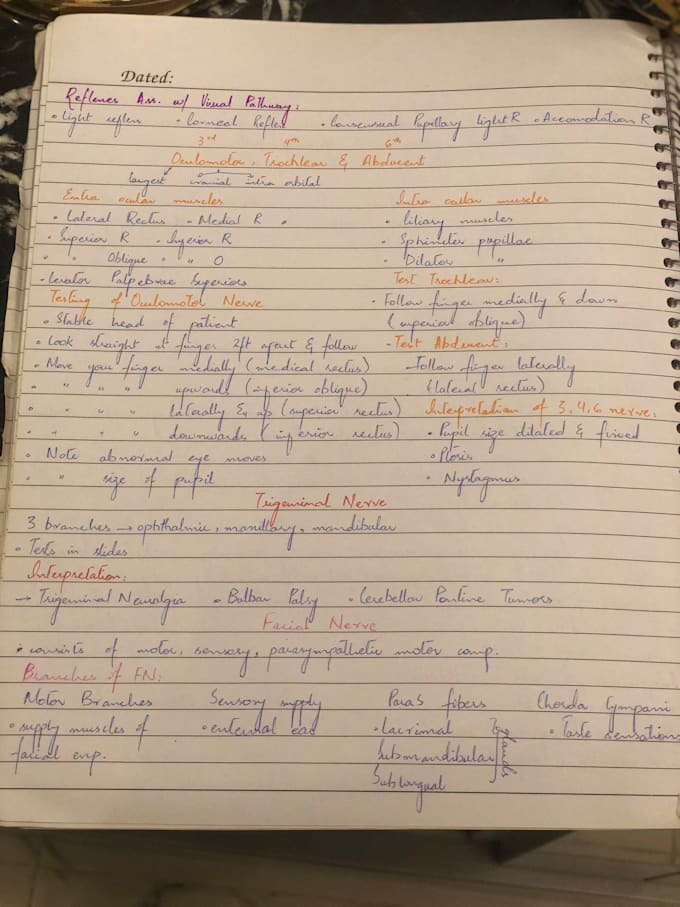 Dated:
Reflexes Ass. w/ Visual Pathway:
• Light reflex • Corneal Reflex • Consensual Pupillary Light R • Accomodation R
3rd 4th 6th
Oculomotor, Trochlear & Abducent
largest cranial intra orbital
Extra ocular muscles
• Lateral Rectus • Medial R •
• Superior R • Inferior R
• " Oblique • " O
• Levator Palpebrae Superioris
Testing of Oculomotor Nerve
• Stable head of patient
• Look straight at finger 2ft apart & follow
• Move your finger medially (medical rectus)
• " " " upwards (inferior oblique)
• " " " laterally & up (superior rectus)
• " " " downwards (inferior rectus)
• Note abnormal eye moves
• " size of pupil
Intra ocular muscles
• Ciliary muscles
• Sphincter pupillae
• Dilator "
Test Trochlear:
• Follow finger medially & down
(superior oblique)
- Test Abducent:
- Follow finger laterally
(lateral rectus)
Interpretation of 3, 4, 6 nerve:
• Pupil size dilated & fixed
• Ptosis
• Nystagmus
Trigeminal Nerve
3 branches → ophthalmic, maxillary, mandibular
• Tests in slides
Interpretation:
→ Trigeminal Neuralgia • Bulbar Palsy • Cerebellar Pontine Tumors
Facial Nerve
• consists of motor, sensory, parasympathetic motor comp.
Branches of FN:
Motor Branches
• supply muscles of
facial exp.
Sensory supply
• external ear
ParaS fibers
• Lacrimal
Submandibular
Sublingual
glands
Chorda Tympani
• Taste sensations